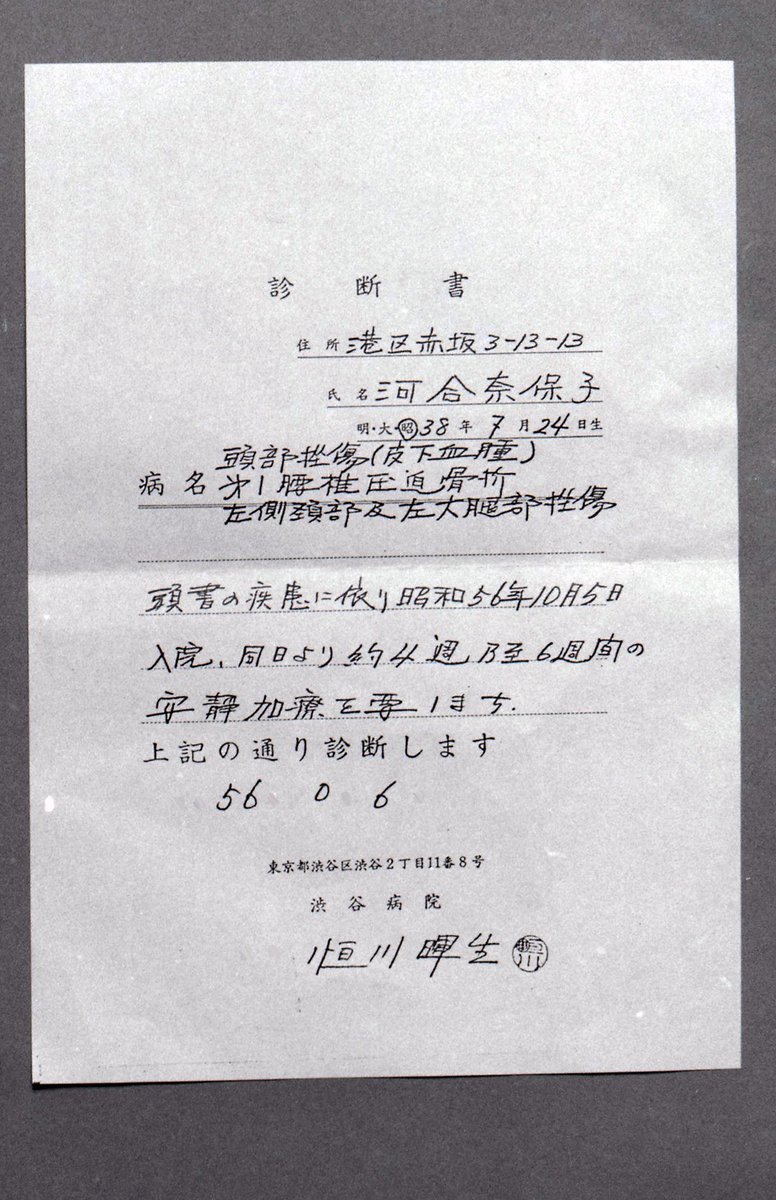 診断書
住所 港区赤坂3-13-13
氏名 河合奈保子
明・大・昭 38年7月24日生
頭部挫傷(皮下血腫)
病名 第1腰椎圧迫骨折
左側頚部及左大腿部挫傷
頭書の疾患に依り昭和56年10月5日
入院、同日より約4週乃至6週間の
安静加療を要します.
上記の通り診断します
56 0 6
東京都渋谷区渋谷2丁目11番8号
渋谷病院
恒川暉生